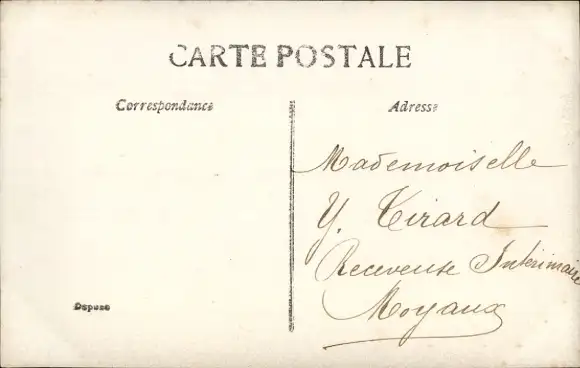 CARTE POSTALE
Correspondance
Adresse
Mademoiselle
Y. Tirard
Receveuse Intérimaire
Moyaux
Depose